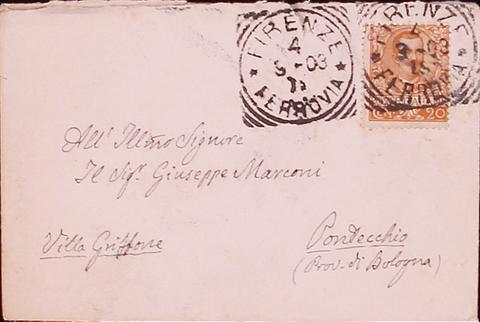 FIRENZE
4
9 - 03
FERROVIA
FIRENZE
4
9 - 03
FERROVIA
20
All' Illmo Signore
Il Sigr. Giuseppe Marconi
Villa Griffone
Pontecchio
(Prov. di Bologna)